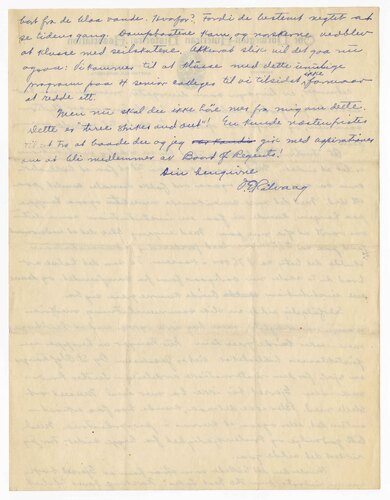 bort fra de blaa vande. Hvorfor? Fordi de bestemt negtet at
se tidens gang. Dampbaatene kom, og norskerne vedblev
at klusse med seilskutene. Akkurat slik vil det gaa nu
ogsaa: Vi kommer til at klusse med dette umulige
program paa 4 senior colleges til vi tilsidst ikke formaar
at redde ett.
Men nu skal du ikke høre mer fra mig om dette.
Dette er "three strikes and out"! En kunde næsten fristes
til at tro at baade du og jeg gik med aspirationer
om at bli medlemmer av Board of Regents!
Din hengivne
O E Rølvaag